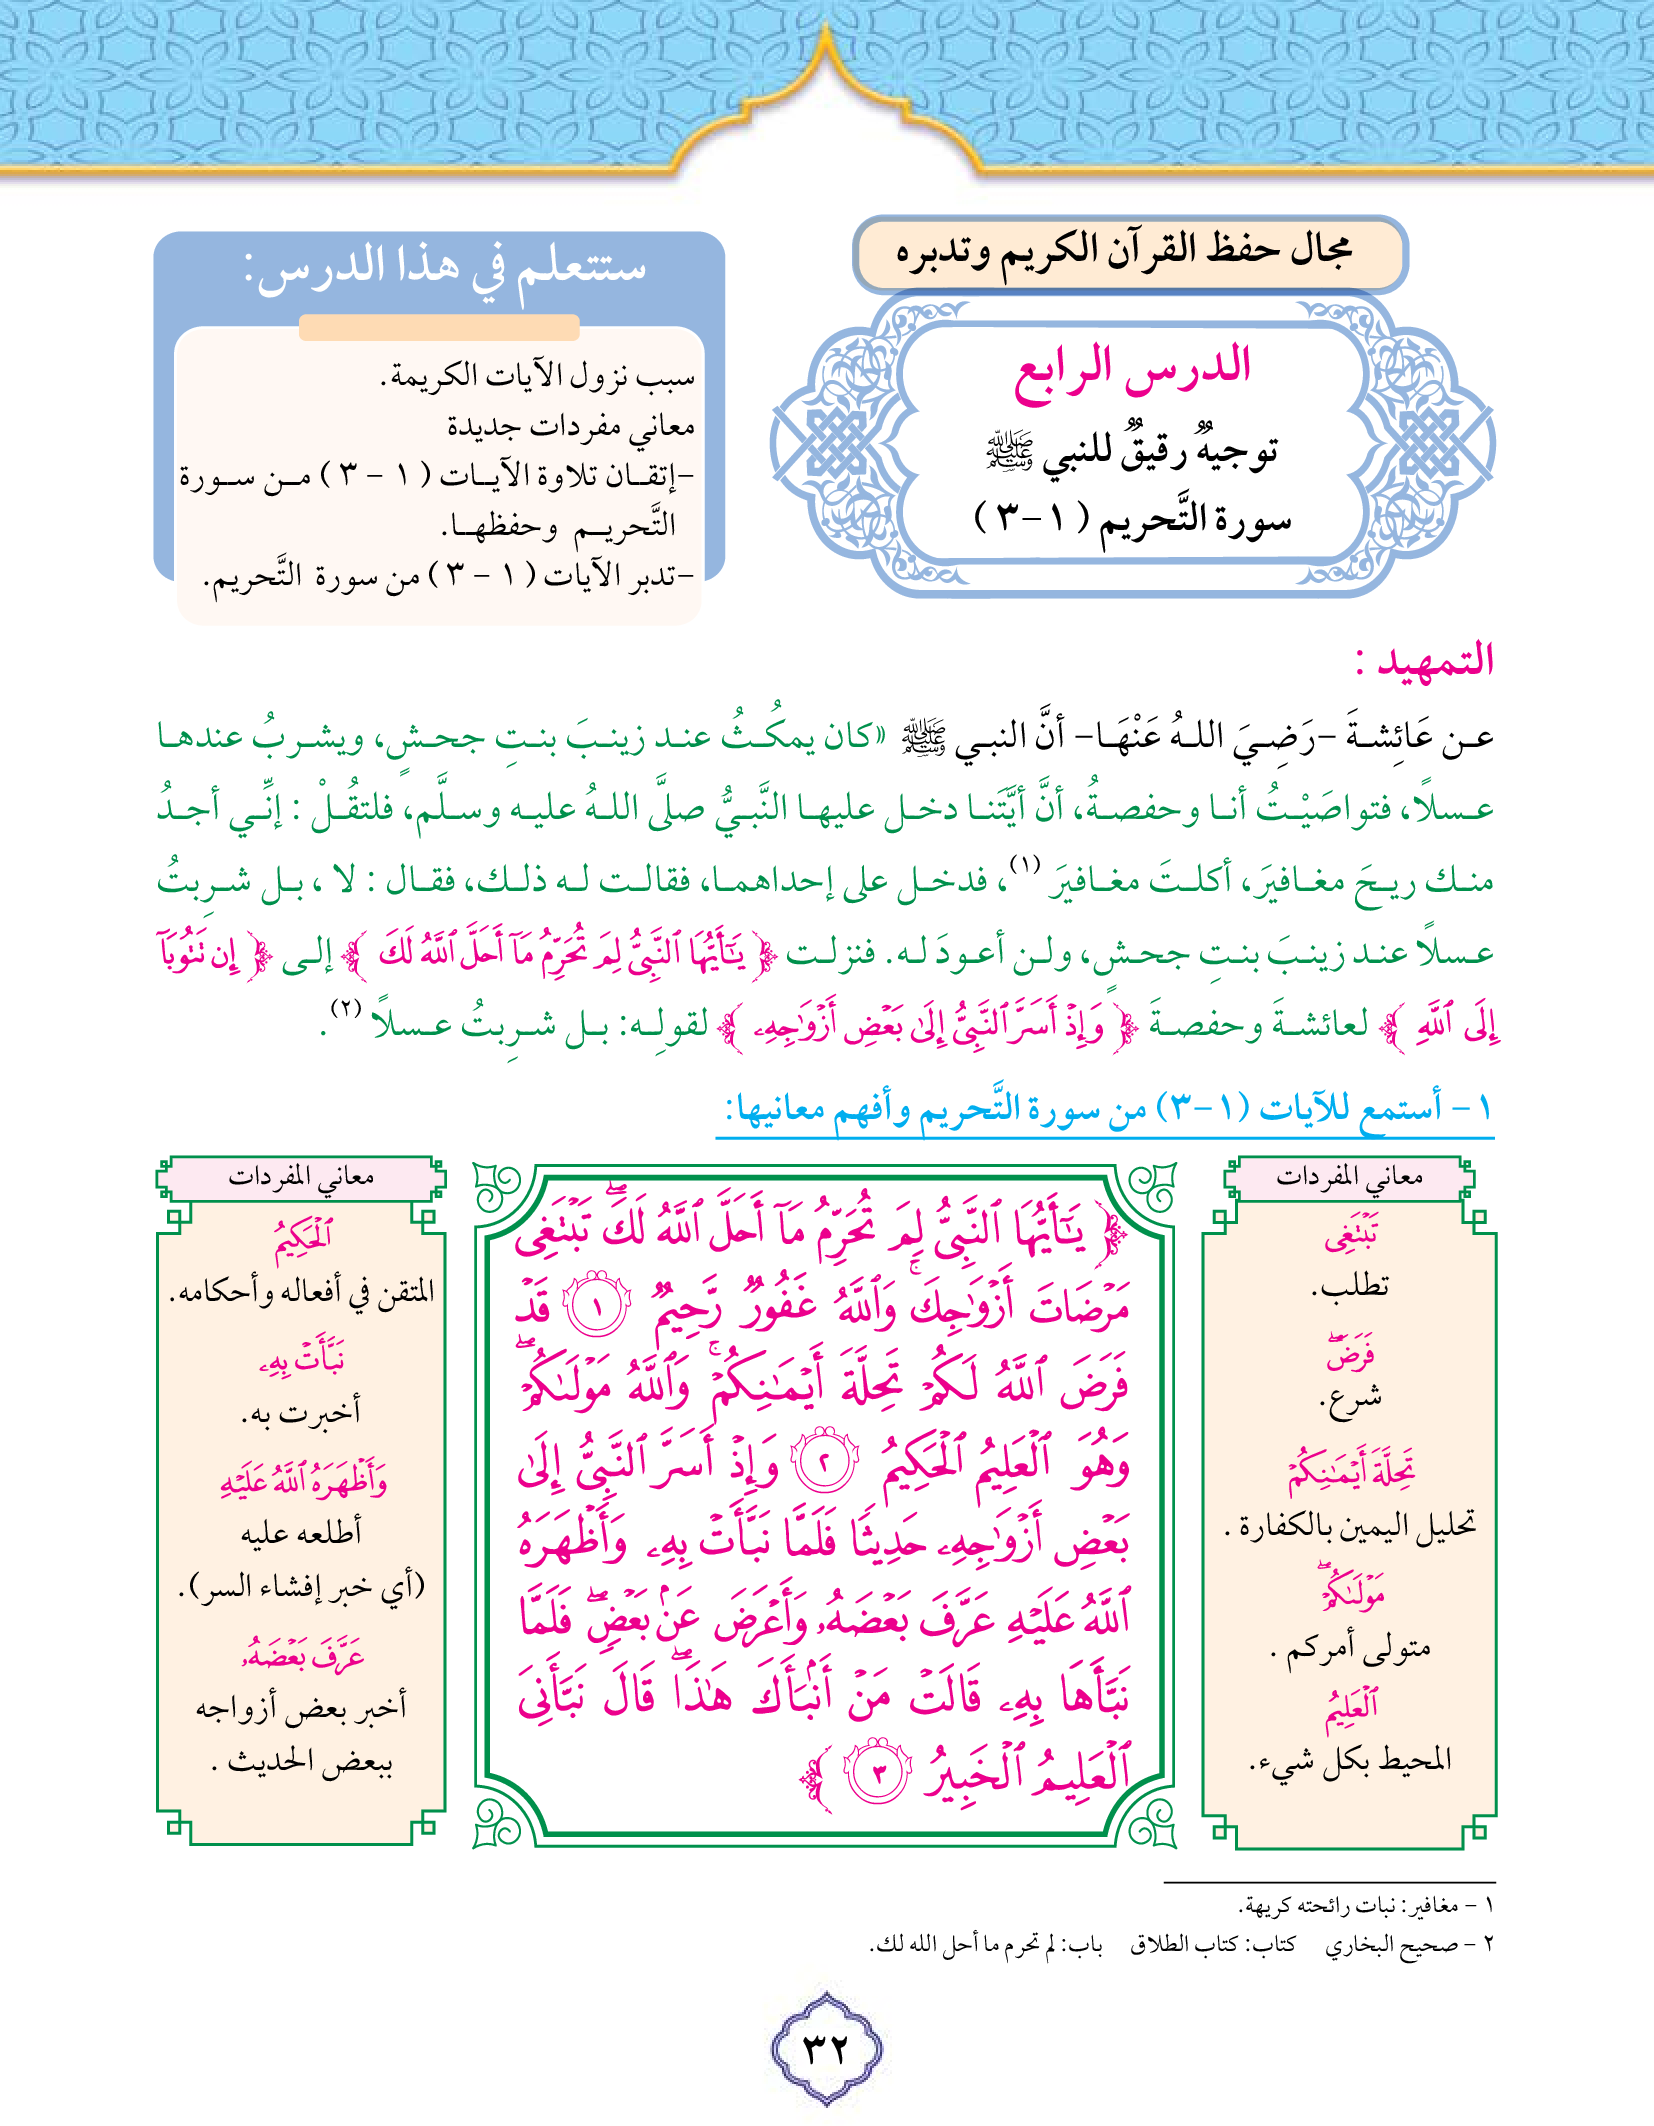 مجال حفظ القرآن الكريم وتدبره
الدرس الرابع
توجيهٌ رقيقٌ للنبي ﷺ
سورة التَّحريم ( ١-٣ )
ستتعلم في هذا الدرس:
سبب نزول الآيات الكريمة.
معاني مفردات جديدة
-إتقـان تلاوة الآيـات ( ١ - ٣ ) مـن سـورة
التَّحريـم وحفظهـا.
-تدبر الآيات ( ١ - ٣ ) من سورة التَّحريم.
التمهيد :
عـن عَائِشـةَ -رَضِـيَ اللـهُ عَنْهَـا- أنَّ النبـي ﷺ «كان يمكُـثُ عنـد زينـبَ بنـتِ جحـشٍ، ويشـربُ عندهـا
عـسلًا، فتواصَيْـتُ أنـا وحفصـةُ، أنَّ أيَّتَنـا دخـل عليهـا النَّبـيُّ صلَّى اللـهُ عليـه وسـلَّم، فلتقُـلْ : إنِّـي أجـدُ
منـك ريـحَ مغـافيرَ، أكلـتَ مغـافيرَ (١)، فدخـل على إحداهمـا، فقالـت لـه ذلـك، فقـال : لا ، بـل شـرِبتُ
عـسلًا عنـد زينـبَ بنـتِ جحـشٍ، ولـن أعـودَ لـه. فنزلـت ﴿ يَٰٓأَيُّهَا ٱلنَّبِيُّ لِمَ تُحَرِّمُ مَآ أَحَلَّ ٱللَّهُ لَكَ ﴾ إلـى ﴿ إِن تَتُوبَآ
إِلَى ٱللَّهِ ﴾ لعائشـةَ وحفصـةَ ﴿ وَإِذۡ أَسَرَّ ٱلنَّبِيُّ إِلَىٰ بَعۡضِ أَزۡوَٰجِهِۦ ﴾ لقولِـه: بـل شـرِبتُ عـسلًا (٢).
١- أستمع للآيات (١-٣) من سورة التَّحريم وأفهم معانيها:
معاني المفردات
تَبۡتَغِي
تطلب.
فَرَضَۖ
شرع.
تَحِلَّةَ أَيۡمَٰنِكُمۡ
تحليل اليمين بالكفارة .
مَوۡلَىٰكُمۡۖ
متولى أمركم .
ٱلۡعَلِيمُ
المحيط بكل شيء.
﴿ يَٰٓأَيُّهَا ٱلنَّبِيُّ لِمَ تُحَرِّمُ مَآ أَحَلَّ ٱللَّهُ لَكَۖ تَبۡتَغِي
مَرۡضَاتَ أَزۡوَٰجِكَۚ وَٱللَّهُ غَفُورٞ رَّحِيمٞ ١ قَدۡ
فَرَضَ ٱللَّهُ لَكُمۡ تَحِلَّةَ أَيۡمَٰنِكُمۡۚ وَٱللَّهُ مَوۡلَىٰكُمۡۖ
وَهُوَ ٱلۡعَلِيمُ ٱلۡحَكِيمُ ٢ وَإِذۡ أَسَرَّ ٱلنَّبِيُّ إِلَىٰ
بَعۡضِ أَزۡوَٰجِهِۦ حَدِيثٗا فَلَمَّا نَبَّأَتۡ بِهِۦ وَأَظۡهَرَهُ
ٱللَّهُ عَلَيۡهِ عَرَّفَ بَعۡضَهُۥ وَأَعۡرَضَ عَنۢ بَعۡضٖۖ فَلَمَّا
نَبَّأَهَا بِهِۦ قَالَتۡ مَنۡ أَنۢبَأَكَ هَٰذَاۖ قَالَ نَبَّأَنِيَ
ٱلۡعَلِيمُ ٱلۡخَبِيرُ ٣ ﴾
معاني المفردات
ٱلۡحَكِيمُ
المتقن في أفعاله وأحكامه.
نَبَّأَتۡ بِهِۦ
أخبرت به.
وَأَظۡهَرَهُ ٱللَّهُ عَلَيۡهِ
أطلعه عليه
(أي خبر إفشاء السر).
عَرَّفَ بَعۡضَهُۥ
أخبر بعض أزواجه
ببعض الحديث .
١ - مغافير: نبات رائحته كريهة.
٢ - صحيح البخاري كتاب: كتاب الطلاق باب: لم تحرم ما أحل الله لك.
٣٢